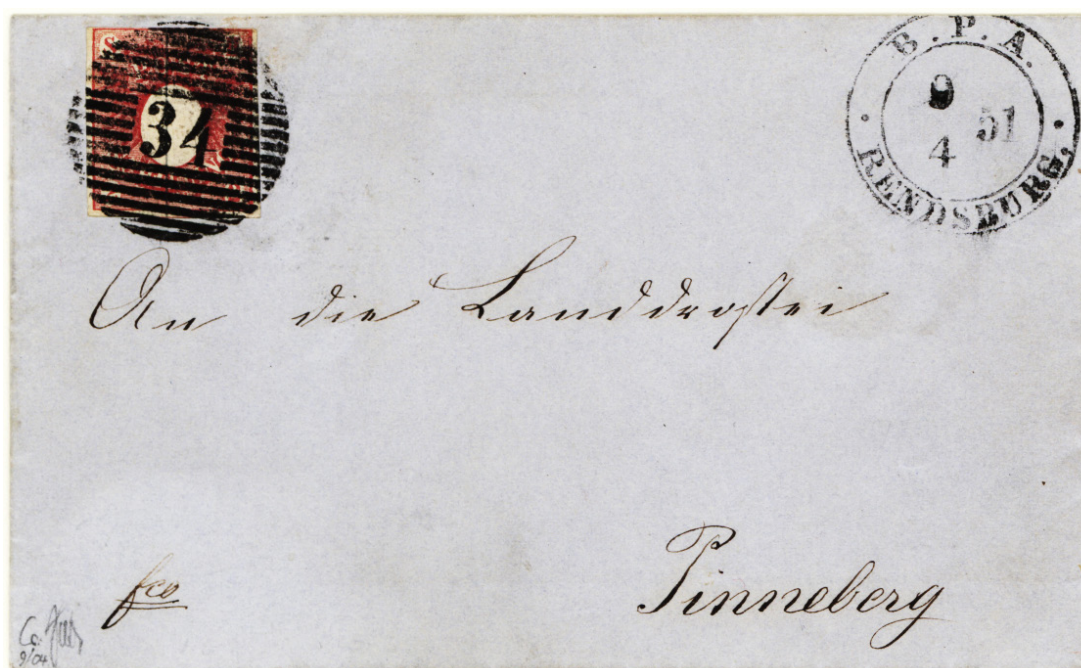 S
34
B. P. A.
9
4 51
RENDSBURG.
An die Landdrostei
fco
Pinneberg
9/04